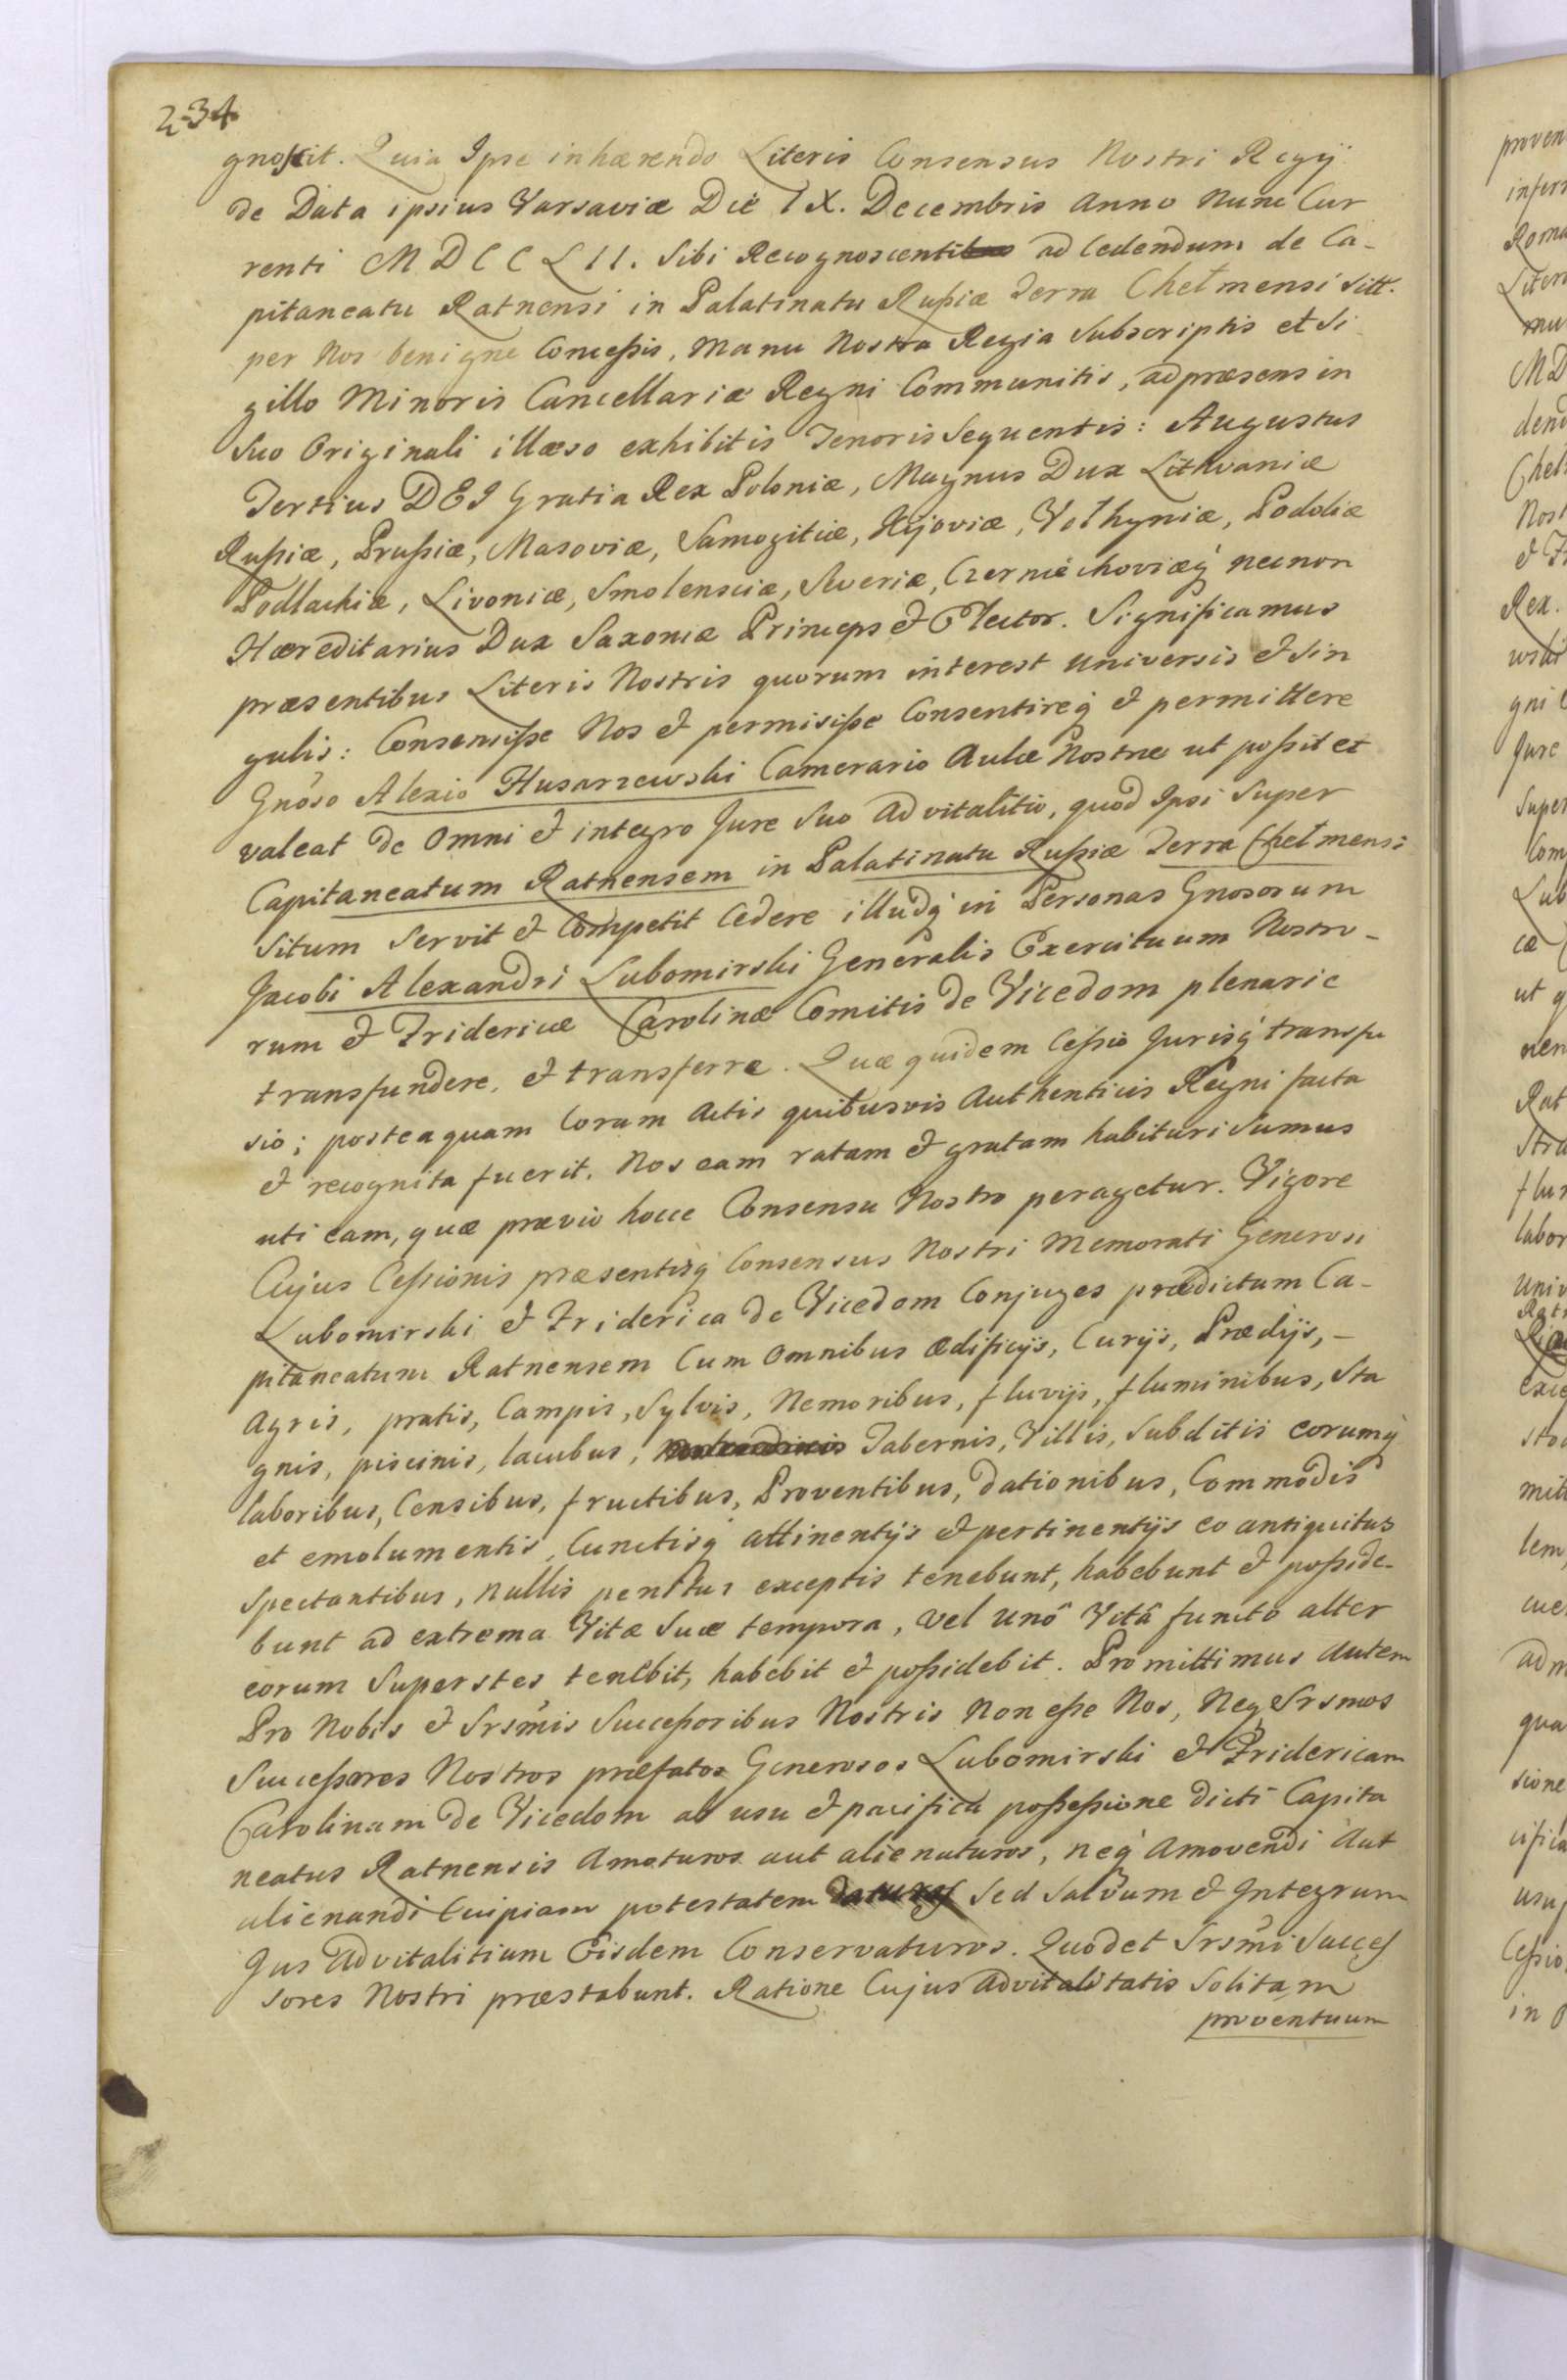 234
gnoscit. Quia Ipse inhærendo Literis Consensus Nostri Regij
de Data ipsius Varsaviæ Die IX. Decembris Anno Nunc Cur
renti MDCCLII. Sibi Recognoscenti ad Cedendum de Ca-
pitaneatu Ratnensi in Palatinatu Rußiæ Terra Chełmensi Sitt.
per Nos benigne Conceßis, Manu Nostra Regia Subscriptis et Si
gillo Minoris Cancellariæ Regni Communitis, ad præsens in
Suo Originali illæso exhibitis Tenoris Sequentis: Augustus
Tertius DEI Gratia Rex Poloniæ, Magnus Dux Lithvaniæ
Rußiæ, Prußiæ, Masoviæ, Samogitiæ, Kijoviæ, Volhyniæ, Podoliæ
Podlachiæ, Livoniæ, Smolensciæ, Severiæ, Czerniechoviæq́ necnon
Hæreditarius Dux Saxoniæ Princeps & Elector. Significamus
præsentibus Literis Nostris quorum interest universis & Sin
gulis: Consensiße Nos & permisiße Consentireq́ & permittere
Gnōso Alexio Husarzewski Camerario Aulæ Nostræ ut poßit et
valeat de Omni & integro Jure Suo Advitalitio, quod Ipsi Super
Capitaneatum Ratnensem in Palatinatu Rußiæ Terra Chełmensi
Situm Servit & Competit Cedere illudq́ in Personas Gnosorum
Jacobi Alexandri Lubomirski Generalis Exercituum Nostro-
rum & Fridericæ Carolinæ Comitis de Vicedom plenarie
transfundere, & transferre. Quæ quidem Ceßio Jurisq́ transfu
sio; posteaquam Coram Actis quibusvis Authenticis Regni facta
& recognita fuerit. Nos eam ratam & gratam habituri Sumus
uti eam, quæ prævio hocce Consensu Nostro peragetur. Vigore
Cujus Ceßionis præsentisq́ Consensus Nostri Memorati Generosi
Lubomirski & Friderica de Vicedom Conjuges prædictum Ca-
pitaneatum Ratnensem Cum Omnibus Ædificijs, Curijs, Prædijs,-
Agris, pratis, Campis, Sylvis, Nemoribus, fluvijs, fluminibus, Sta
gnis, piscinis, lacubus, Tabernis, Villis, Subditis eorumq́
laboribus, Censibus, fructibus, Proventibus, dationibus, Commodis
et emolumentis, Cunctisq́ attinentijs & pertinentijs eo antiquitus
Spectantibus, nullis penitus exceptis tenebunt, habebunt & poßide-
bunt ad extrema Vitæ Suæ tempora, vel unô Vitâ functo alter
eorum Superstes tenebit, habebit & poßidebit. Promittimus autem
Pro Nobis & Srsmīs Succeßoribus Nostris Non eße Nos, Neq́ Srsmos
Succeßores Nostros præfatos Generosos Lubomirski & Fridericam
Carolinam de Vicedom ab usu & pacifica poßeßione dicti Capita
neatus Ratnensis Amoturos aut alienaturos, neq́ Amovendi Aut
alienandi Cuipiam potestatem daturos Sed Salvum & Integrum
Jus Advitalitium Eisdem Conservaturos. Quod et Srsmī Succes
sores Nostri præstabunt. Ratione Cujus Advitalitatis Solitam
proventuum